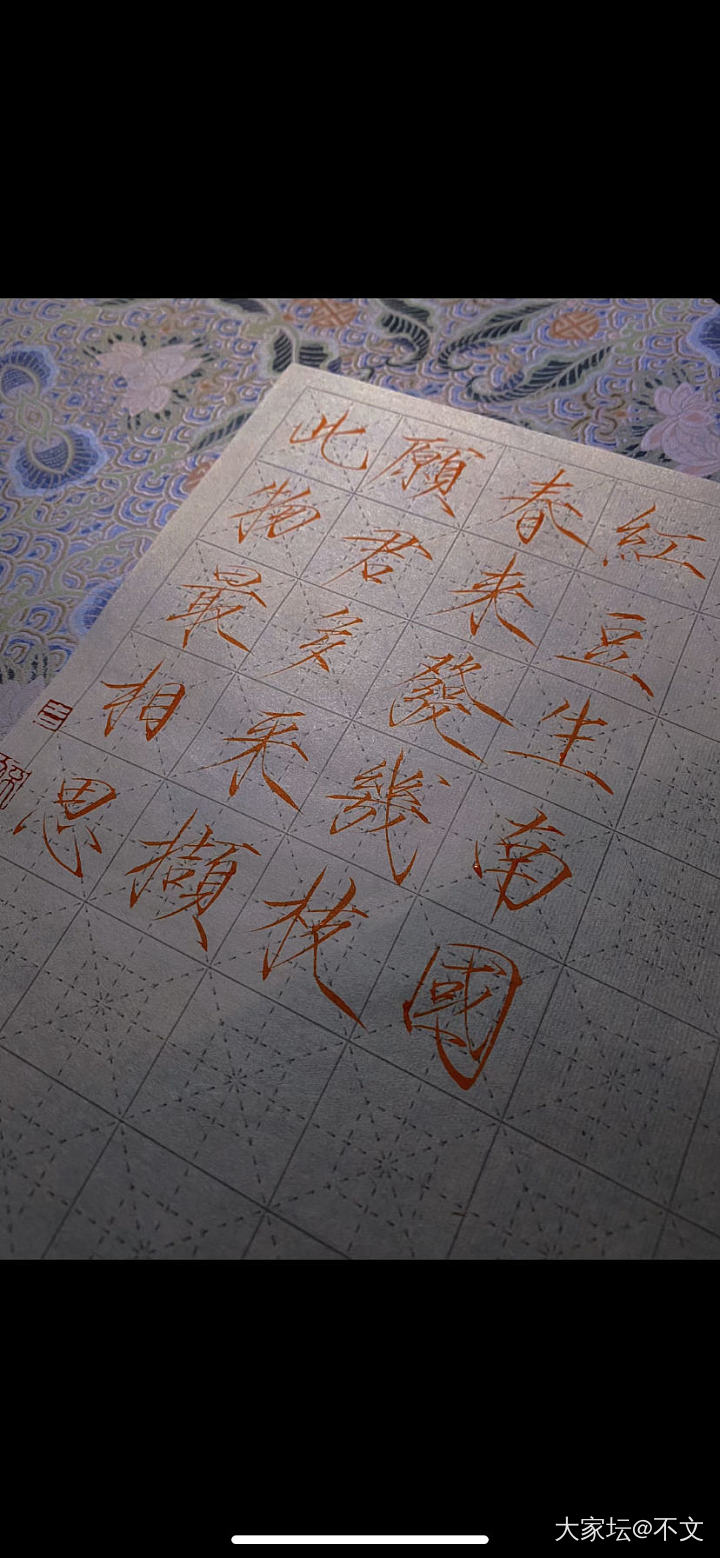 紅豆生南國
春來發幾枝
願君多采擷
此物最相思
大家坛@不文